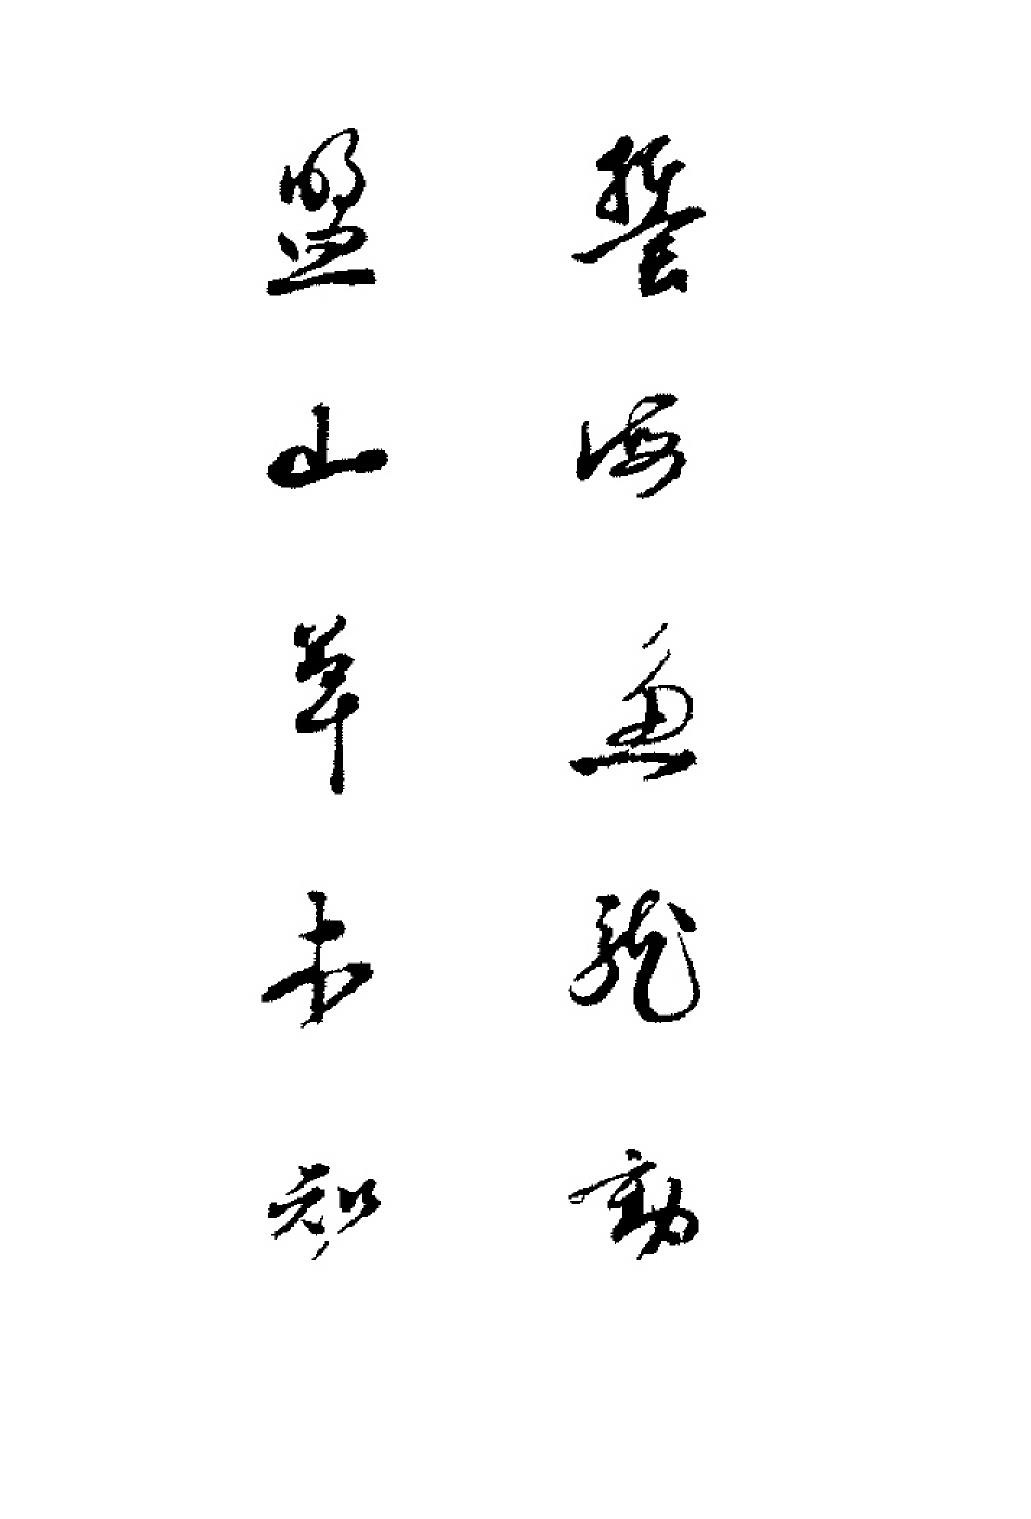 誓海魚龍動
盟山草未知